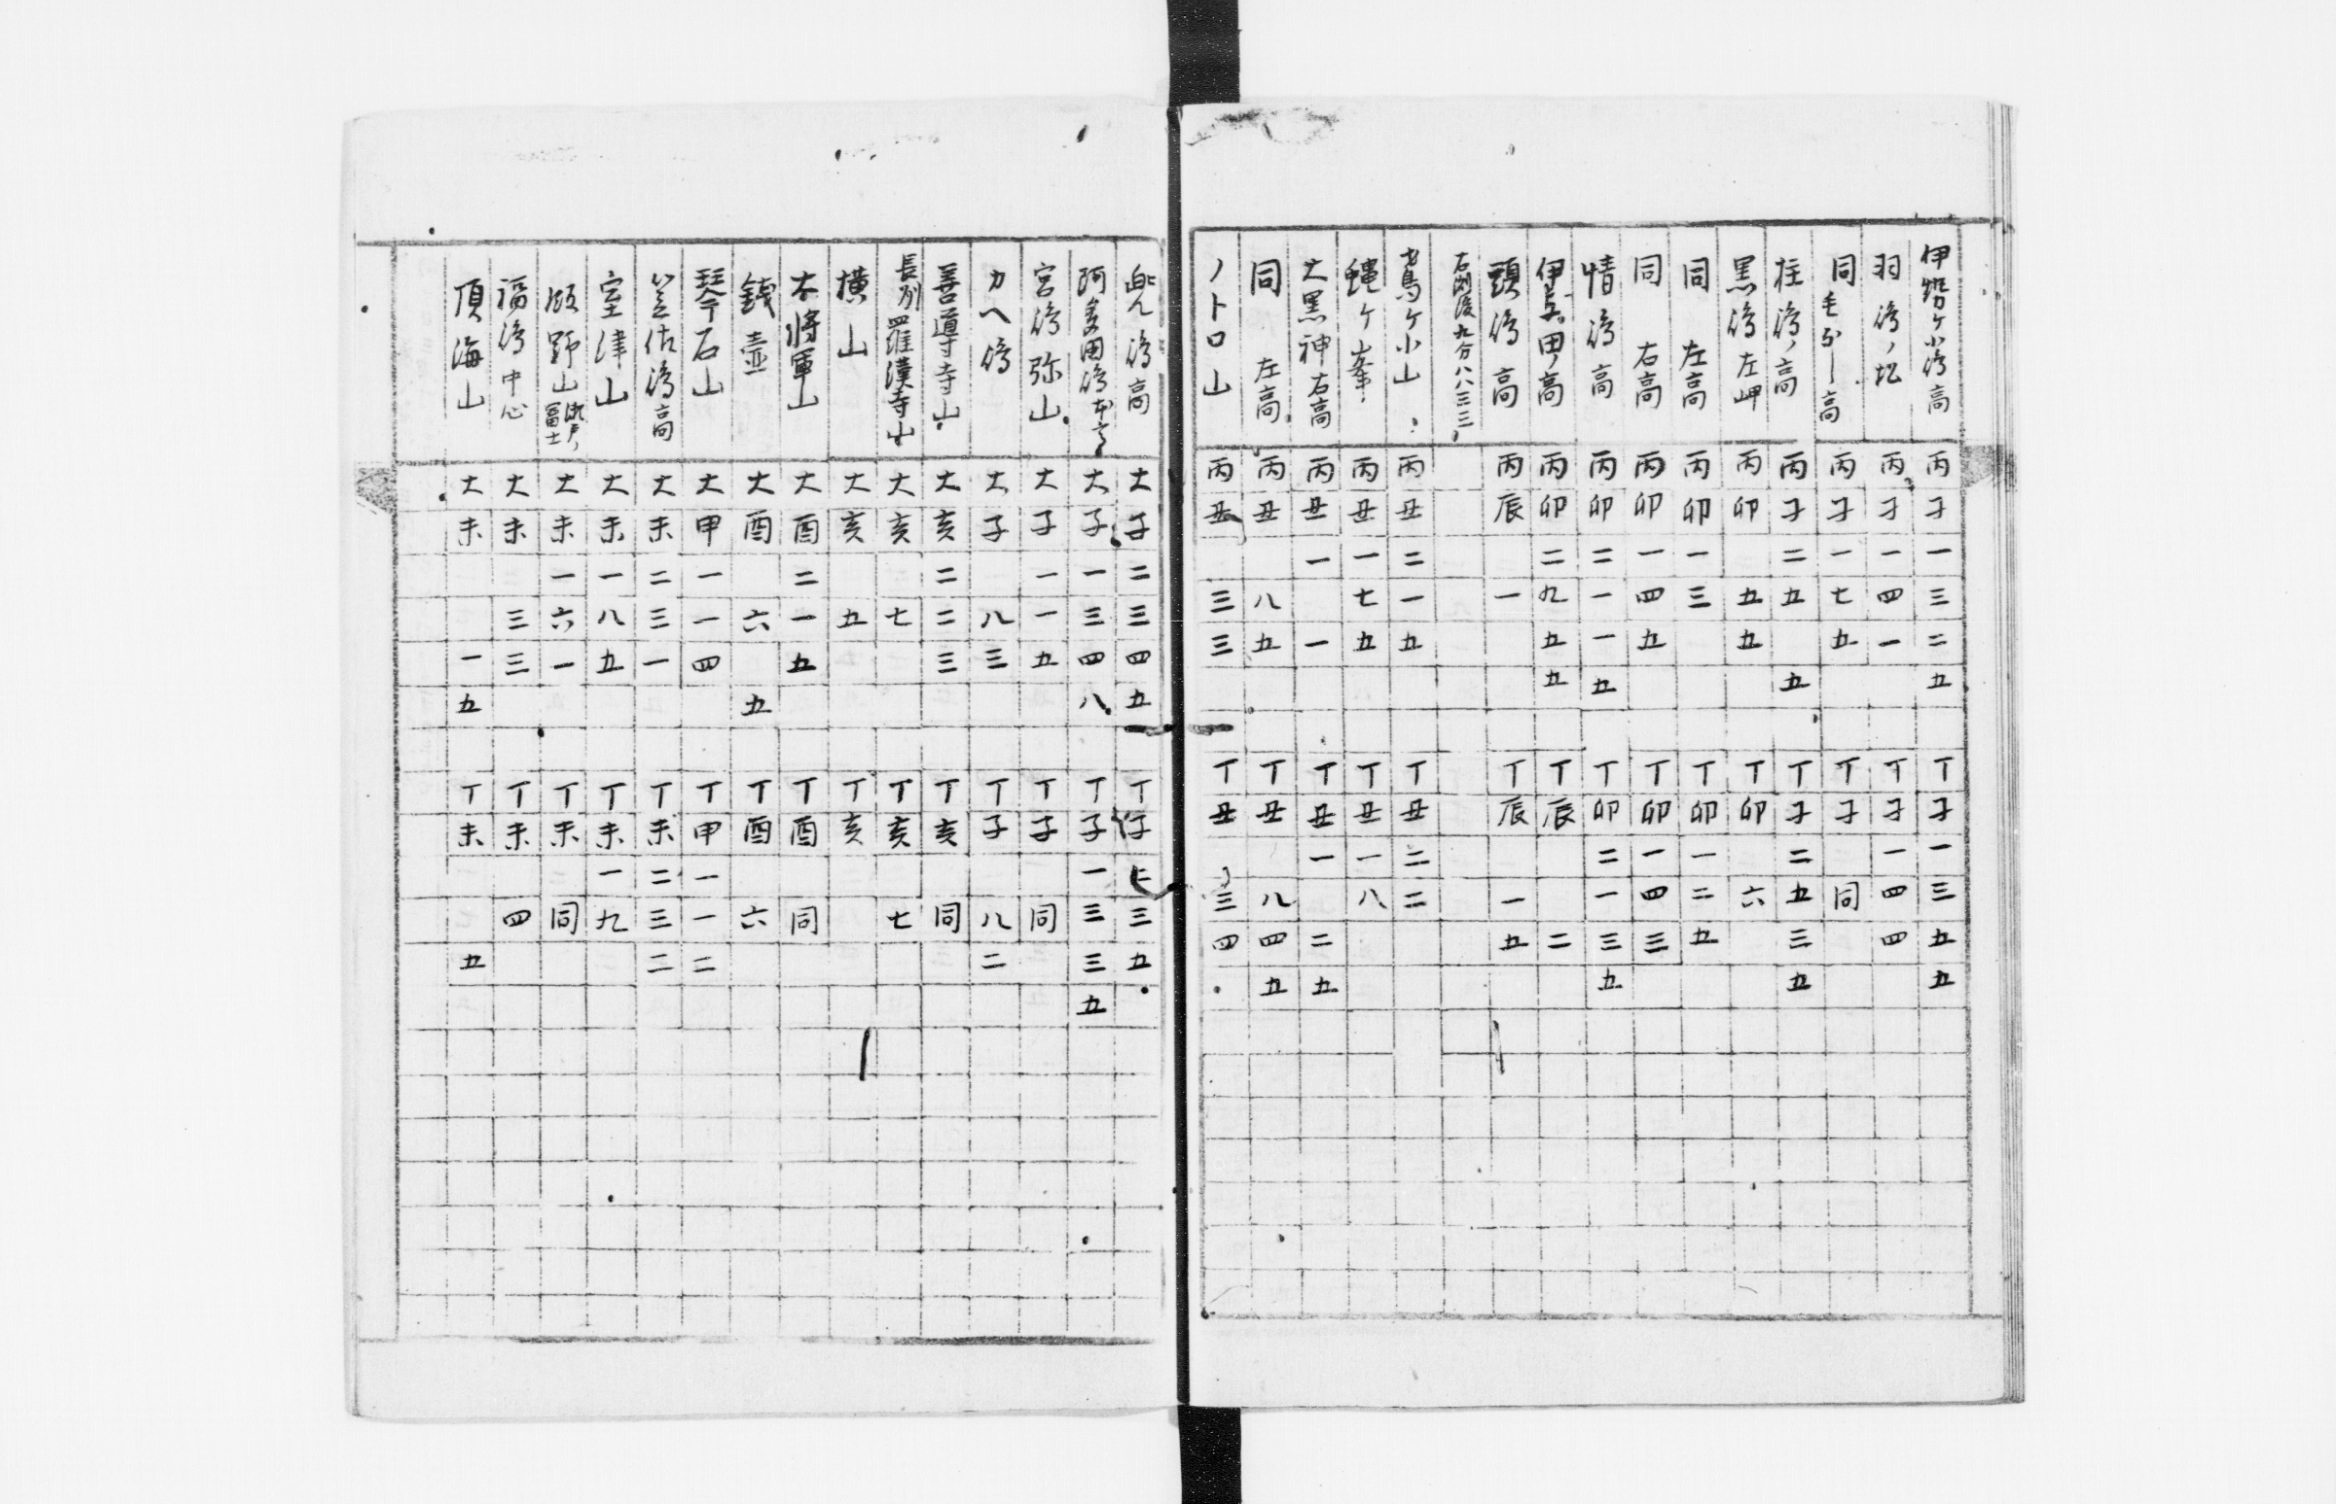 伊勢ケ小島高 丙子一三二五 丁子一三五五
羽島ノ圯 丙子一四一 丁子一四四
同 高 丙子一七五 丁子同
柱島ノ高 丙子二五 五 丁子二五三五
黒島左岬 丙卯 五五 丁卯 六
同 左高 丙卯一三 丁卯一二五
同 右高 丙卯一四五 丁卯一四三
情島高 丙卯二一一五 丁卯二一三五
伊与田ノ高 丙卯二九五五 丁辰 二
頭島高 丙辰 一 丁辰 一五
右測後九分八八三三
ケ小山 丙丑二一五 丁丑二二
縄ケ峯 丙丑一七五 丁丑一八
大黒神右高 丙丑一 一 丁丑一 二五
同 左高 丙丑 八五 丁丑 八四五
ノトロ山 丙丑 三三 丁丑 三四
島高 大子二三四五 丁子二三五
阿多田島 大子一三四八 丁子一三三五
宮島弥山 大子一一五 丁子同
カヘ島 大子 八三 丁子 八二
善導寺山 大亥二二三 丁亥同
長列羅漢寺山 大亥 七 丁亥 七
横山 大亥 五 丁亥
大将軍山 大酉二一五 丁酉同
銭壷 大酉 六 五 丁酉 六
琴石山 大甲一一四 丁甲一一二
笠佐島高 大未二三一 丁未二三二
室津山 大未一八五 丁未一九
野山 富士 大未一六一 丁未同
福島中心 大未 三三 丁未 四
頂海山 大未 一五 丁未 五